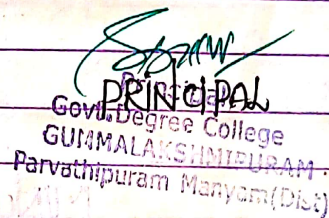 PRINCIPAL
Govt. Degree College
GUMMALAKSHMIPURAM
Parvathipuram Manyam(Dist)